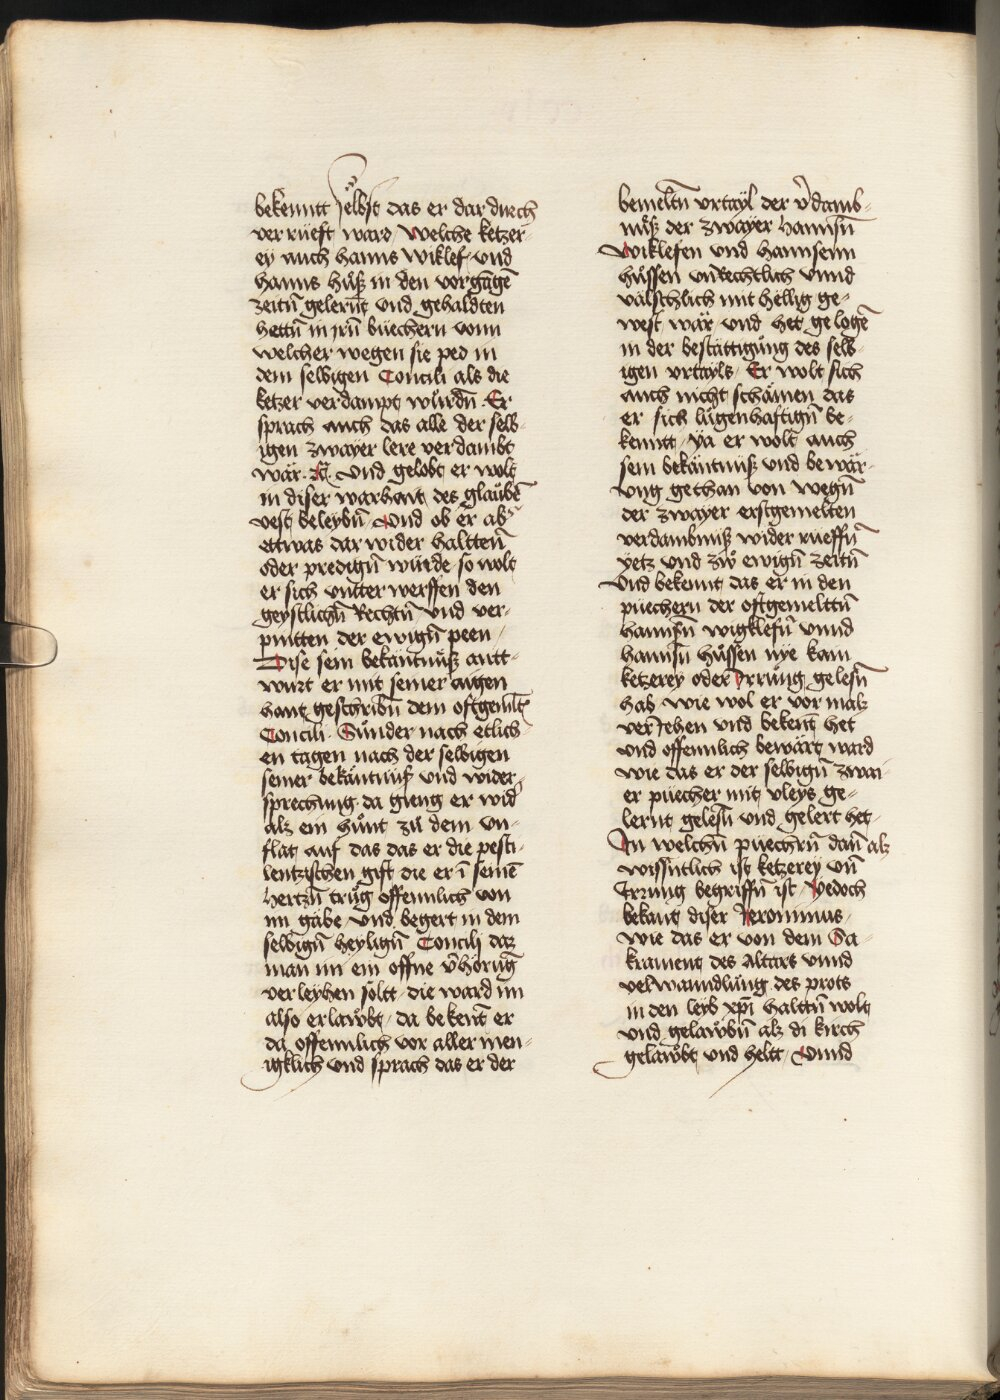 bekenntt selbst das er dar durch
ver rueft ward / Welche ketzer-
ey auch hanns wiklef / und
hanns hůss in den vorgāgē
zeitn̄ gelernt und gehaldten
hettn̄ in jrn̄ buechern vonn
welcher wegen sie ped in
dem selbigen Concili als die
ketzer verdampt wůrdn̄ . Er
sprach auch das alle der selb-
igen zwayer lere verdambt
wär . Er . und gelobt er wolt
in diser warhait des glaůbē
vest beleybn̄ / Und ob er ab
ettwas dar wider haltten̄
oder predign̄ wůrde / so wolt
er sich untter werffen den
geystlichn̄ Rechtn̄ / und ver-
puntten der ewign̄ peen /
Dise sein bekäntnůß antt-
wurt er mit seiner aigen
hant geschribn̄ dem oftgemlt̄
Concili . Sůnder nach etlich-
en tagen nach der selbigen
seiner bekäntnůß und wider
sprechung da gieng er wid
alz ein hůnt zů dem vn-
flat auf das das er die pesti-
lentzischen gift die er ī seinē
hertzn̄ trůg offennlich von
im gäbe / und begert in dem
selbign̄ heylign̄ Concilj daz
man im ein offne v̄hőrung
verleyhen sőltt / die ward im
also erlawbt / da bekent̄ er
da offennlich vor aller men-
igklich und sprach das er der
bemeltn̄ vrtayl der v̄damb-
nůß der zwayer hannsn̄
Wiklefen und hannsenn
hůssen vn̄Rechtlich vnnd
välschlich mit hellig ge-
west wär / und het gelogē
in der bestättigůng des selb-
igen vrtayls / Er wolt sich
auch nicht schämen das
er sich lůgenhaftign̄ be-
kenntt / ya er wolt auch
sein bekäntnůß und bewär-
vng gethan von wegn̄
der zwayer erstgemelten
verdambnůß wider rueffn̄
yetz und zů ewign̄ zeitn̄
Vnd bekennt das er in den
půechern der oftgemelttn̄
hannsn̄ wigklefn̄ vnnd
hannsn̄ hůssen nye kain
ketzerey oder Irrůng gelesn̄
hab / wie wol er vor malz
verJehen und bekent̄ het
und offennlich bewärt ward
wie das er der selbign̄ zwai-
er půecher mit vleys ge-
lernt gelesn̄ und gelert het-
In welchn̄ půechrn̄ dan̄ alz
wissntlich ist ketzerey vn̄
Irrung begriffn̄ ist / Yedoch
bekant diser Jeronimus /
wie das er von dem Sa-
krament des Altars vnnd
verwanndlůng des prots
in den leyb xp̄i halttn̄ wolt
und gelawbn̄ alz di kirch
gelawbt und heltt / Vnnd